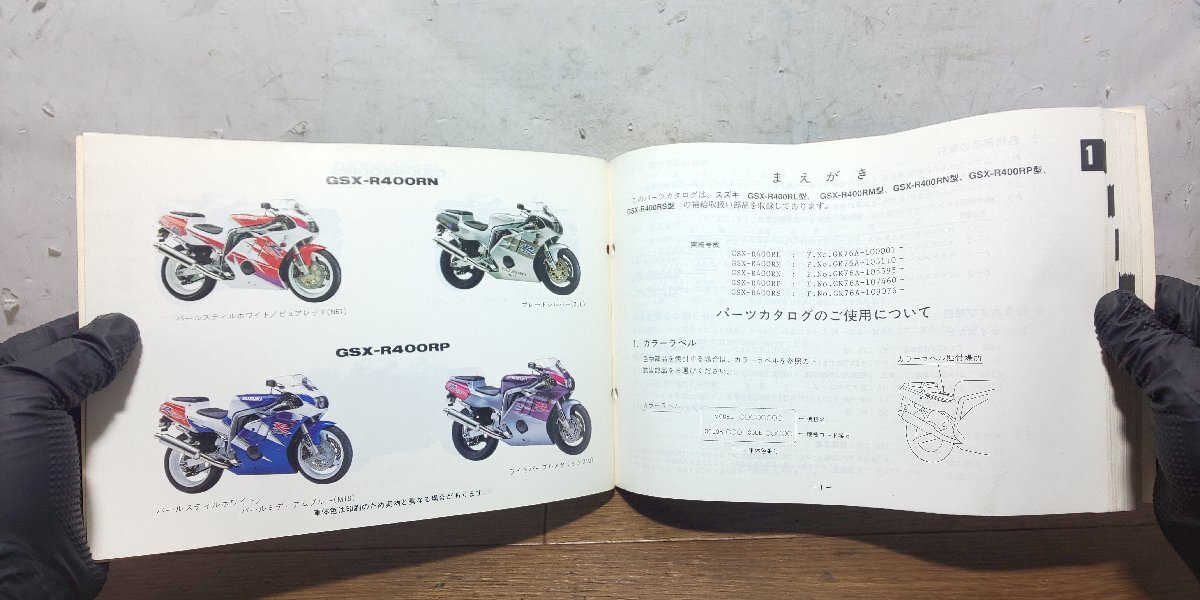 GSX-R400RN
パールスティルホワイト／ピュアレッド(N67)
ブレードシルバー
GSX-R400RP
パールスティルホワイト／
パールミディアムブルー(M16)
ライトパープルメタリック
車体色は印刷のため実物と異なる場合があります。
1
まえがき
このパーツカタログは、スズキ GSX-R400RL型、GSX-R400RM型、GSX-R400RN型、GSX-R400RP型、
GSX-R400RS型 の補給取扱い部品を収録してあります。
実施号機
GSX-R400RL : F.No.GK76A-100001~
GSX-R400RM : F.No.GK76A-105110~
GSX-R400RN : F.No.GK76A-105595~
GSX-R400RP : F.No.GK76A-107460~
GSX-R400RS : F.No.GK76A-109076~
パーツカタログのご使用について
1. カラーラベル
色物部品を索引する場合は、カラーラベルを参照の
該当部品をお選びください。
カラーラベル貼付場所
カラーラベル
MODEL
COLOR CODE
車体色番号
SUZUKI